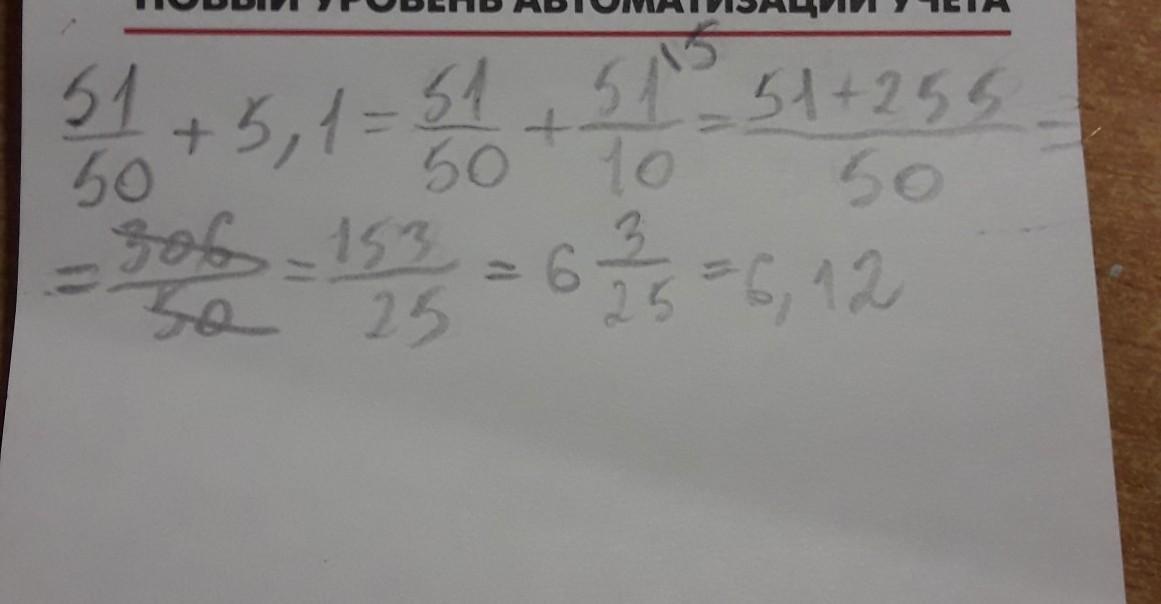 НОВЫЙ УРОВЕНЬ АВТОМАТИЗАЦИИ УЧЕТА
51/50 + 5,1 = 51/50 + 51\5/10 = 51+255/50 =
= 306/50 = 153/25 = 6 3/25 = 6,12